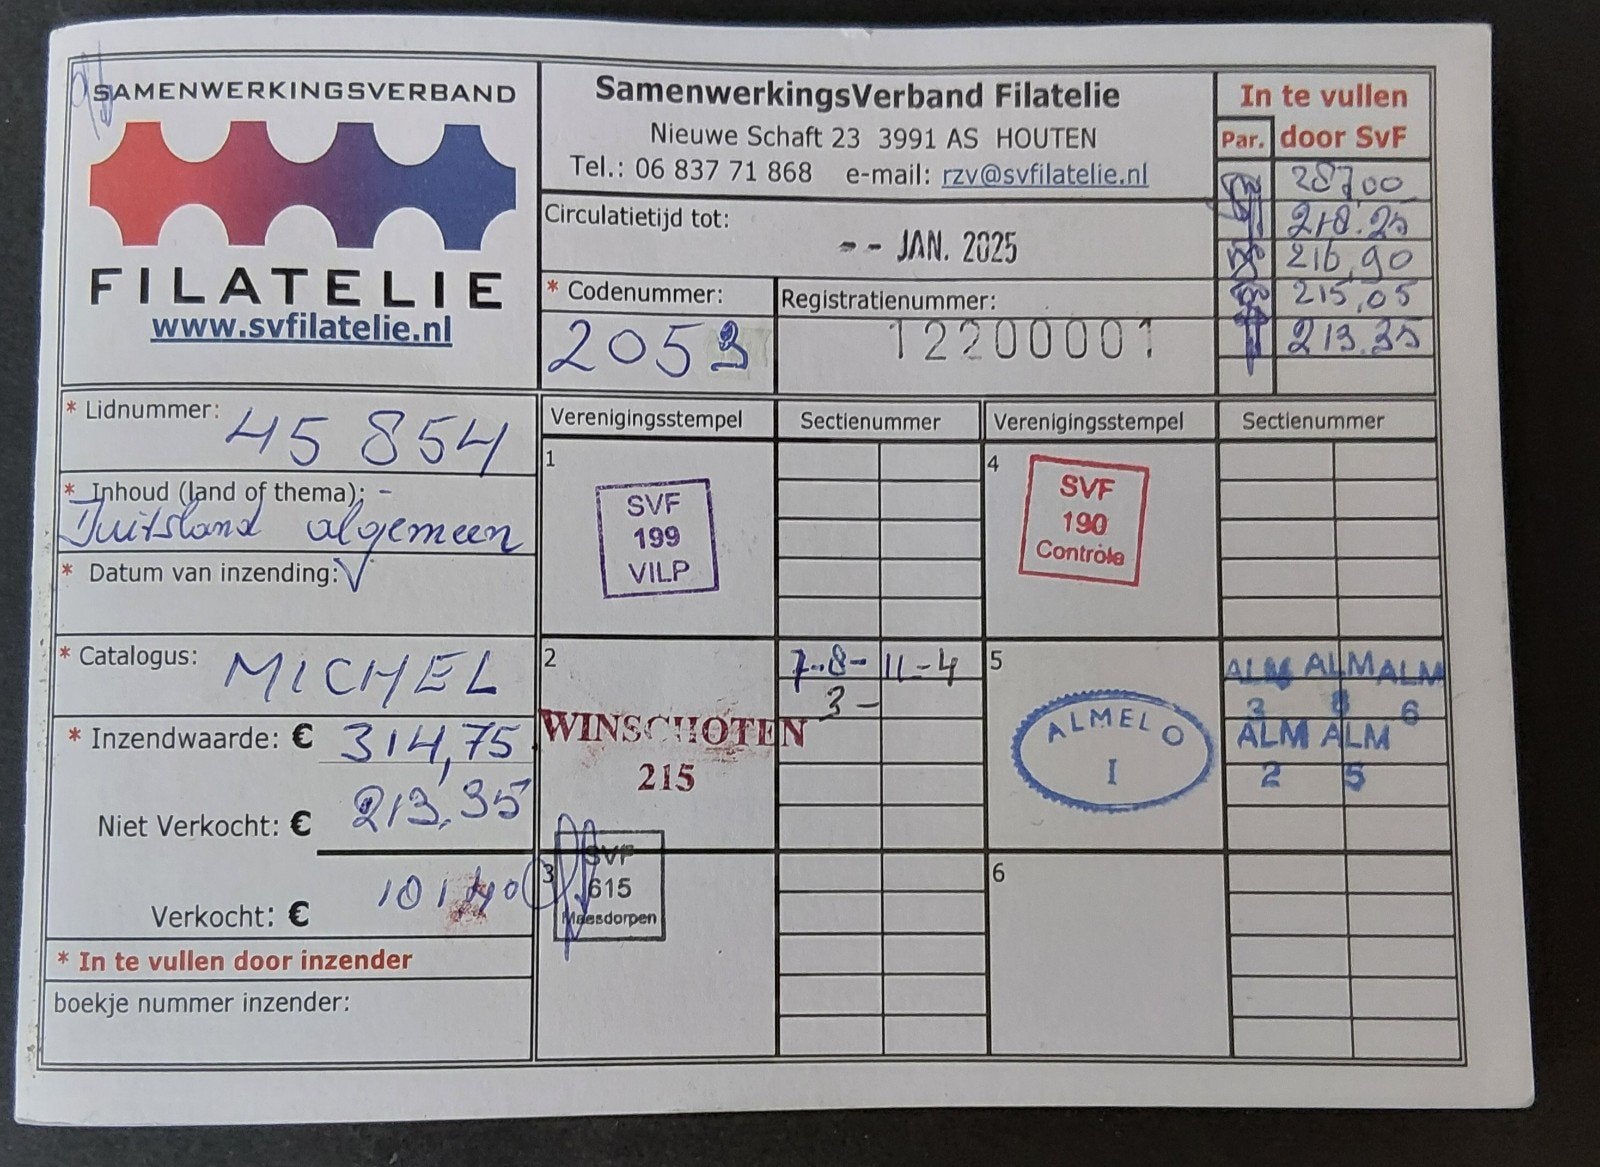 SAMENWERKINGSVERBAND
FILATELIE
www.svfilatelie.nl
SamenwerkingsVerband Filatelie
Nieuwe Schaft 23 3991 AS HOUTEN
Tel.: 06 837 71 868 e-mail: rzv@svfilatelie.nl
In te vullen
Par. door SvF
287,00
218.25
216,90
215,05
213.35
Circulatietijd tot:
-- JAN. 2025
* Codenummer:
2053
Registratienummer:
12200001
* Lidnummer: 45 854
* Inhoud (land of thema): -
Duitsland algemeen
* Datum van inzending:
* Catalogus: MICHEL
* Inzendwaarde: € 314,75
Niet Verkocht: € 213,35
Verkocht: € 101,40
* In te vullen door inzender
boekje nummer inzender:
Verenigingsstempel Sectienummer Verenigingsstempel Sectienummer
1
SVF
199
VILP
4
SVF
190
Controle
2
WINSCHOTEN
215
7-8- 11-4
3-
5
ALMELO
I
ALM ALM ALM
3 8 6
ALM ALM
2 5
3
SVF
615
Maasdorpen
6